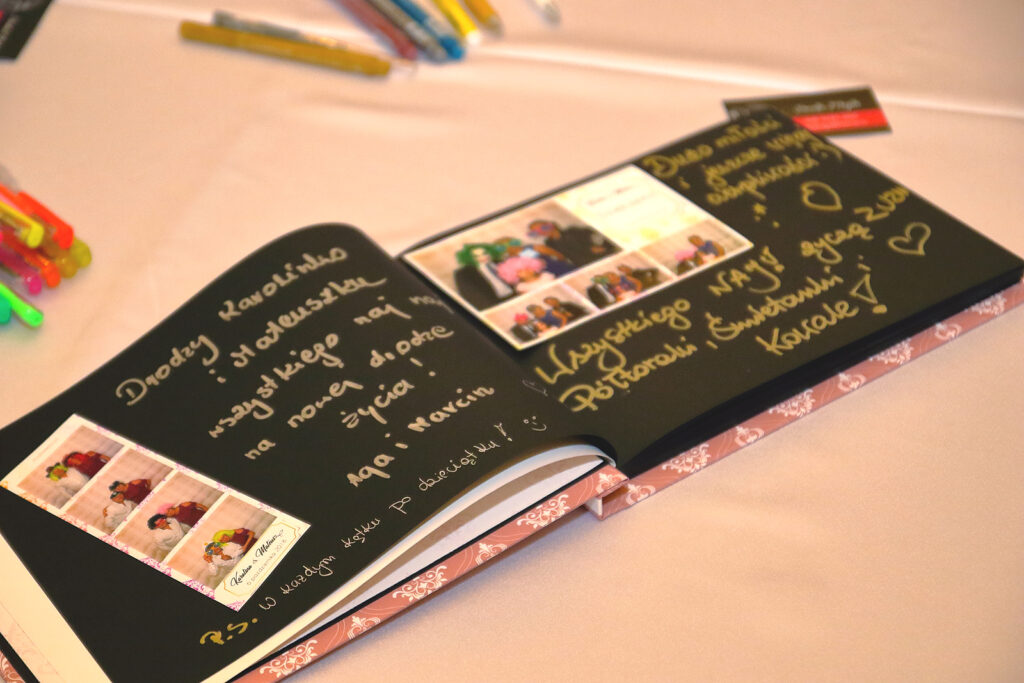 Drodzy Karolinko
i Mateuszku
wszystkiego naj na
na nowej drodze
życia!
Aga i Marcin
P.S. W każdym kątku po dzieciątku!
Karolina & Mateusz
Dużo miłości
i jeszcze więcej
Wszystkiego NAJ! życzą
Półtoraki, Świetanki i
Kowale!